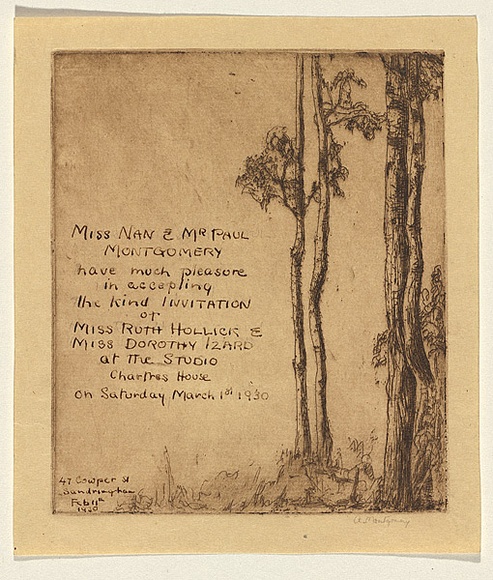 Miss Nan & Mr Paul
Montgomery
have much pleasure
in accepting
the kind Invitation
of
Miss Ruth Hollick &
Miss Dorothy Izard
at the Studio
Chartres House
on Saturday March 1st 1930
47 Cowper St
Sandringham
Feb 11th
1930
A S Montgomery